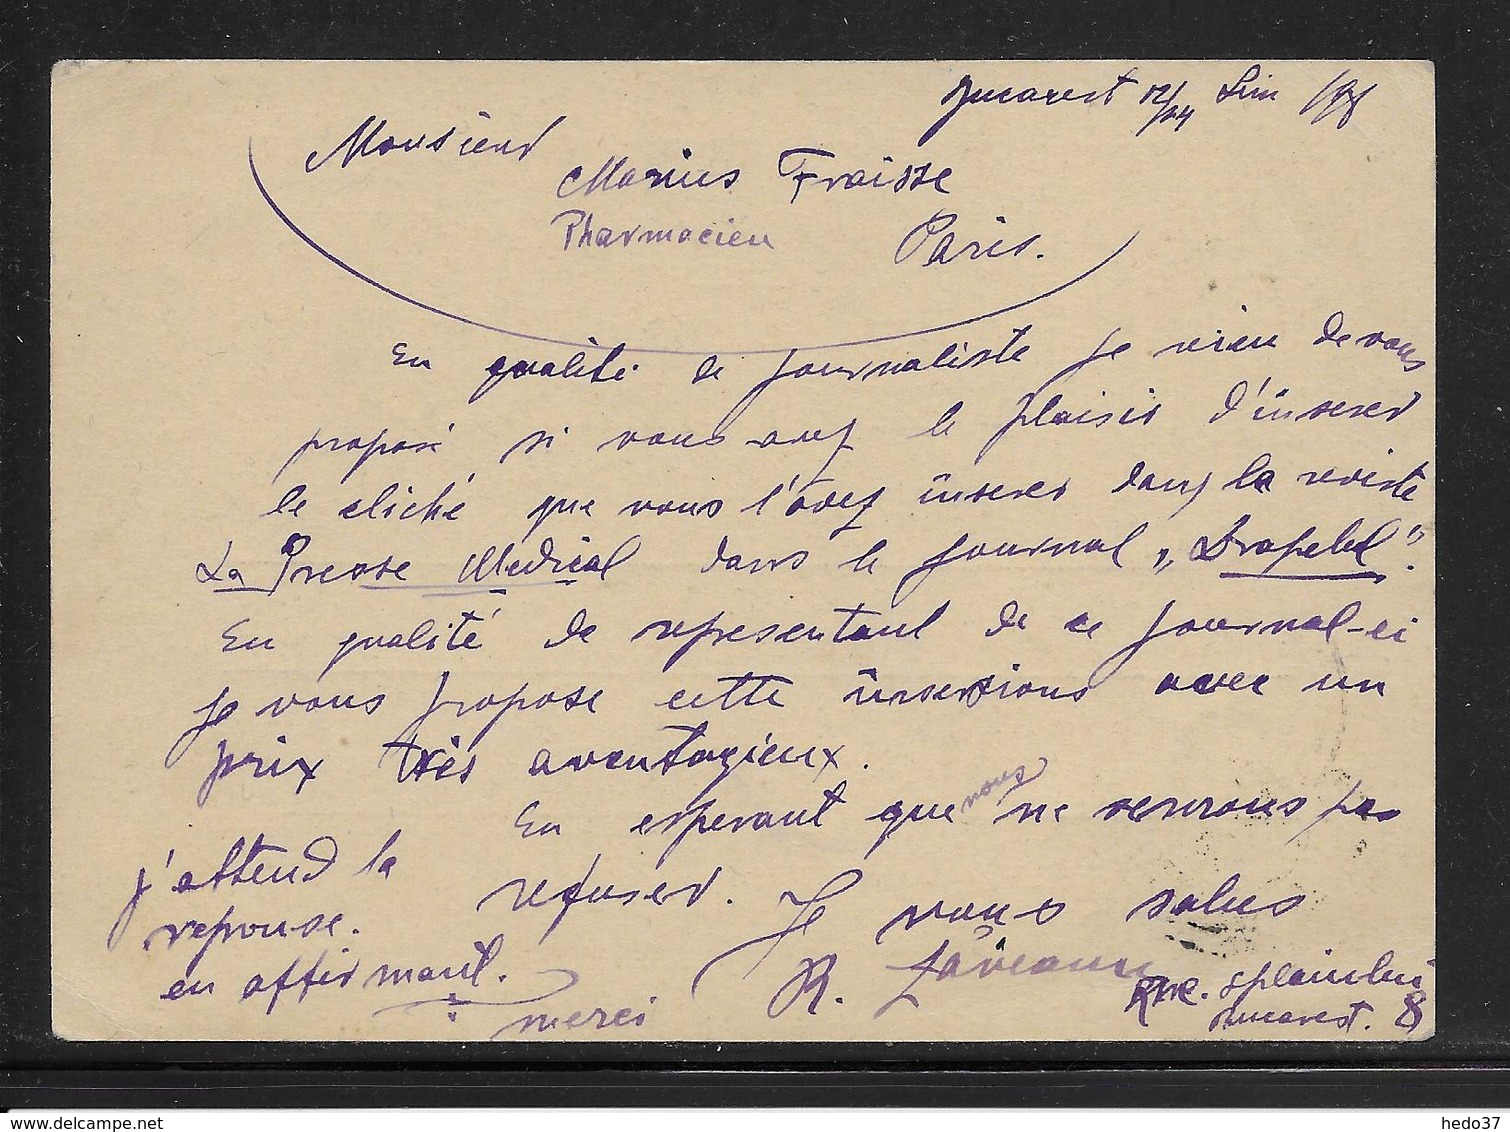 Bucarest 12/24
Monsieur
Marius Fraisse
Pharmacien Paris.
En qualité de journaliste je vien de vous
proposé si vous avez le plaisir d'inserer
le cliché que vous l'avez inserer dans la reviste
La Presse Medical dans le journal „Drapelul".
En qualité de representant de ce journal-ci
je vous propose cette insertions avec un
prix très avantagieux.
En esperant que nous ne serons pas
refuser. Je vous salus
j'attend la
reponse.
en affirmant.
merci
R.
Rue.
Bucarest. 8
delcampe.net
hedo37